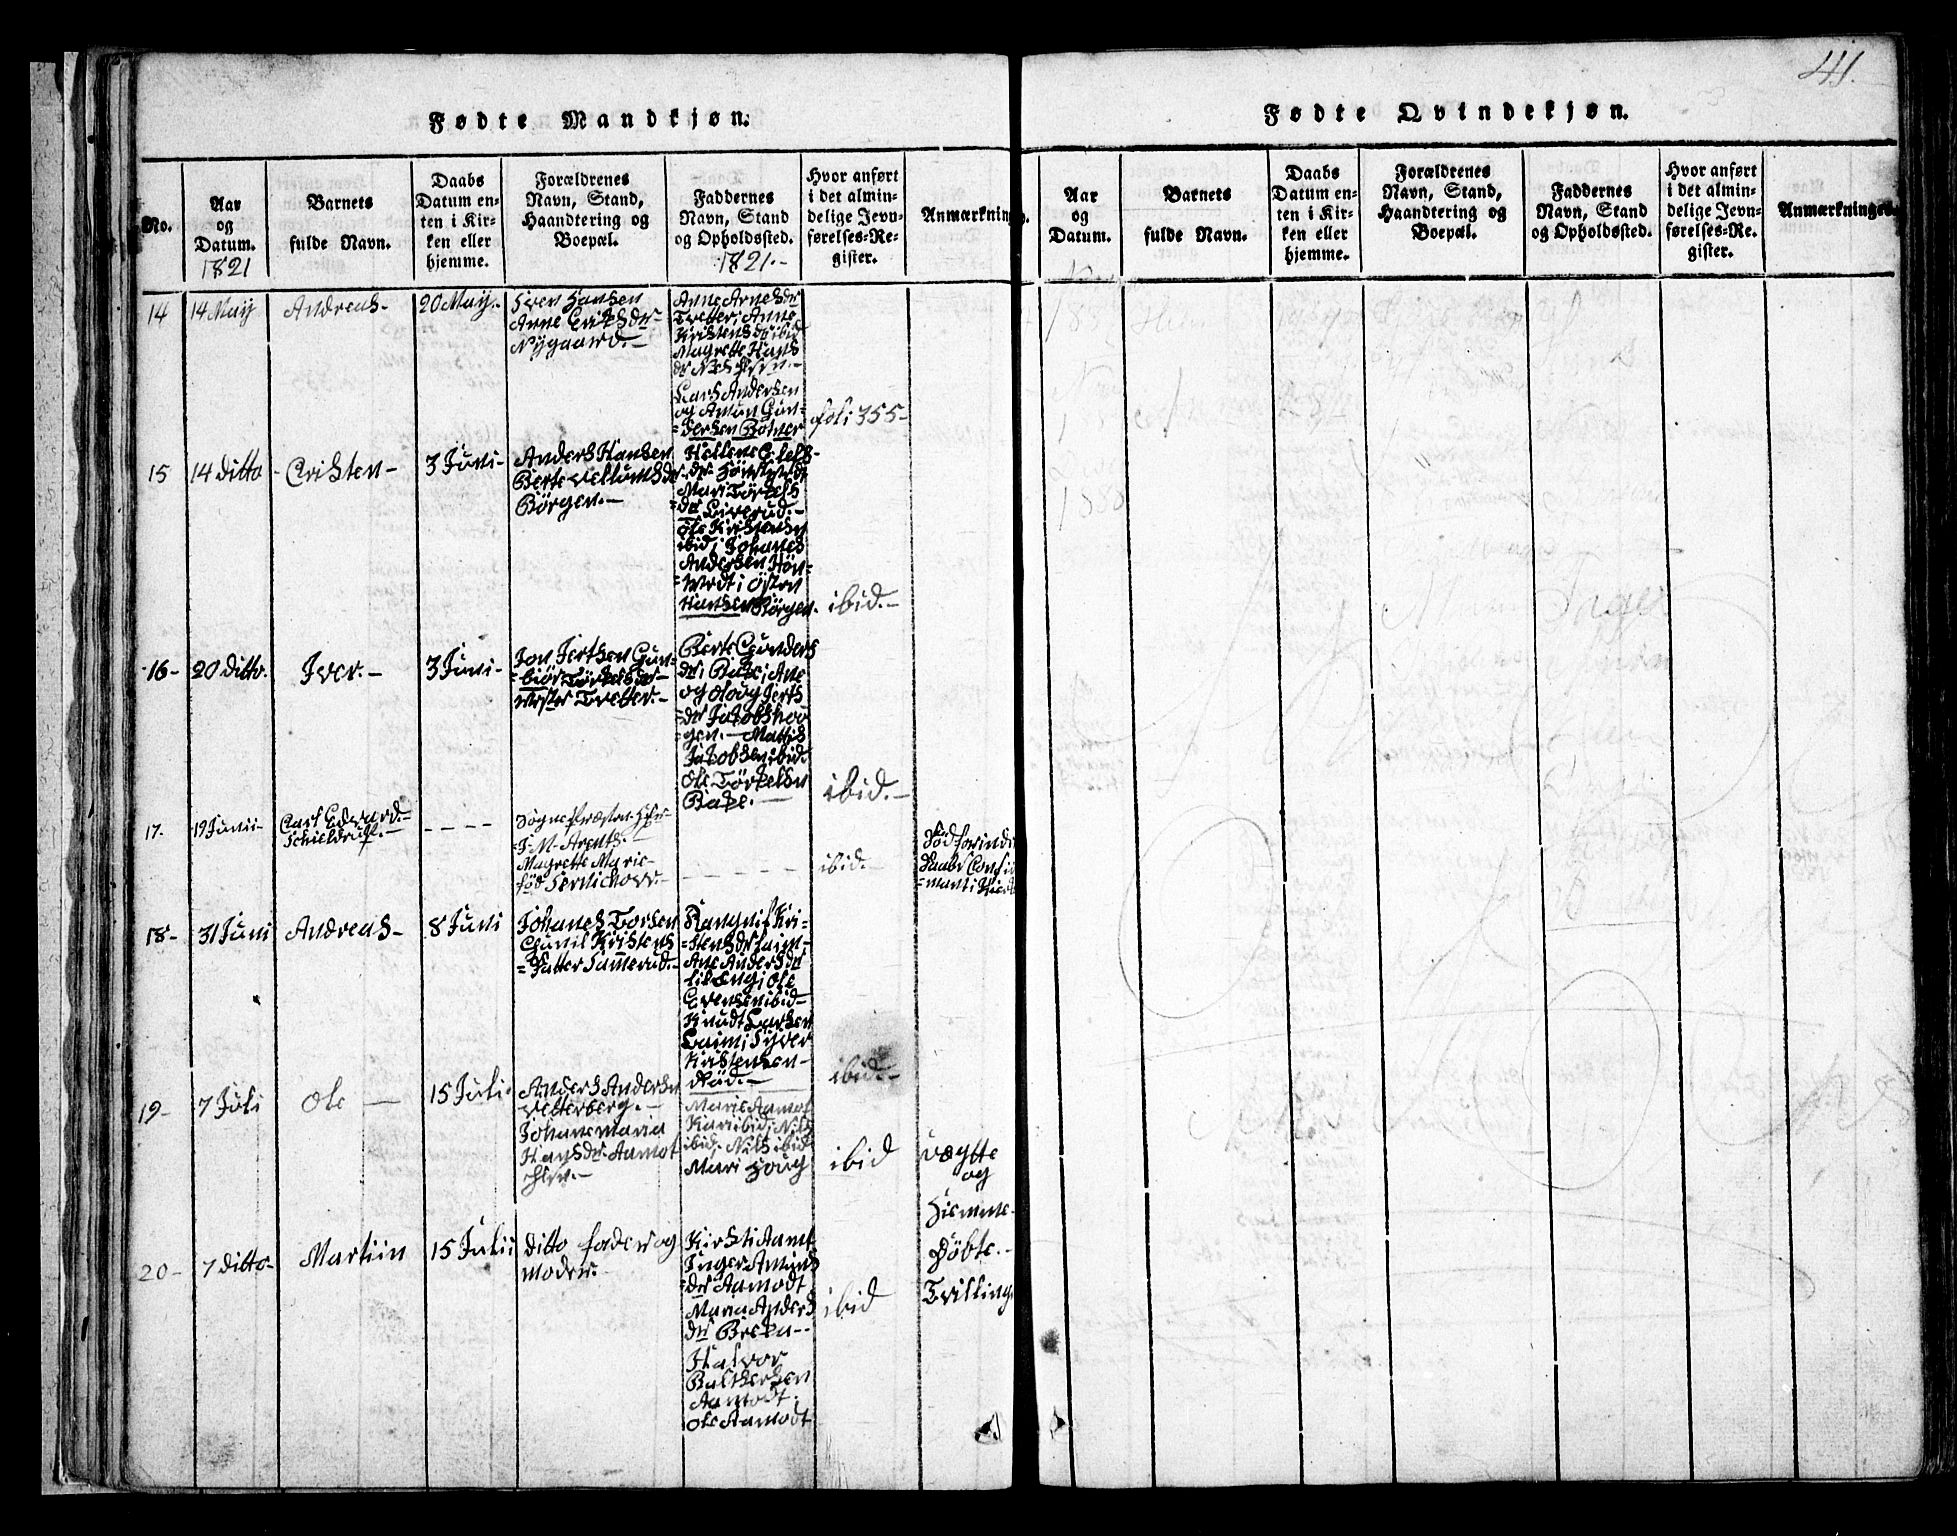 41.
Fødte Mandkjøn.
No.
Aar
og
Datum.
1821
Barnets
fulde Navn.
Daabs
Datum en-
ten i Kir-
ken eller
hjemme.
Forældrenes
Navn, Stand,
Haandtering og
Boepæl.
Faddernes
Navn, Stand
og Opholdssted.
1821.-
Hvor anført
i det almin-
delige Jevn-
førelses-Re-
gister.
Anmærkninger.
14
14 May
Andreas-
20 May.-
Sven Hansen
Anne Eriksdr
Nygaard.-
Anne Arnesdr
Tretter, Anne
Kristensdr ibid
Magrette Hans
dr
Lars Andersen
og Amun Gun-
=dersen
foli 355-
15
14 ditto
Cristen-
3 Juni-
Anders Hansen
Berte
Børgen.-
Hellene
Mari Torkels
=dr Liverud.-
Ole Kristensen
ibid, Johanes
Andersen Høn-
Østen
Hansen Børgen.
ibid.-
16-
20 ditto.
Iver.-
3 Juni-
Jon Jertsen Gun-
=biør Torkelsdr-
Tretter.-
Berte Gunders
dr Bake, Ane
og Oloug Jerts
=dr Jakobshoo
gen.- Mattis
Jakobsen ibid
Ole Torkelsen
Bake.-
ibid.-
17.
19 Junii-
Carl Edvard.-
Schieldrup.-
- - - -
Sognepræsten Her-
=J. M. Arentz.-
Magrette Marie-
fød
- - - - -
ibid.-
Død forinden
Daabs
18-
31 Juni
Andreas-
8 Juni
Johanes Torsen
Gunil Kristens
=Datter Samerud.-
Rangnil Kri-
=stensdr
Ane Andersdr
Lileeng, Ole
Evensen ibid-
Knudt Larsen
Syver
Kristensen-
Rød.-
ibid.-
19-
7 Juli
Ole -
15 Juli.
Anders Andersen
Vetterberg.-
Johanemaria
Hansdr Aamot
Marie Aamot
Kari ibid, Nils
ibid, Nils ibid
Mari Houg
ibid
Vægtte
og
Hiemme-
Døbte.-
Tvilling.
20-
7 ditto-
Martiin
15 Julii
ditto fader og
moder.
Kirsti Aamt
Inger Amuns
=dr Aamodt
Maria Anders
dr Breka-
Halvor
Baltsersen
Aamodt.
Ole Aamodt
ibid
Fødte Qvindekjøn.
Aar
og
Datum.
Barnets
fulde Navn.
Daabs
Datum en-
ten i Kir-
ken eller
hjemme.
Forældrenes
Navn, Stand,
Haandtering og
Boepæl.
Faddernes
Navn, Stand
og Opholdssted.
Hvor anført
i det almin-
delige Jevn-
førelses-Re-
gister.
Anmærkninger.